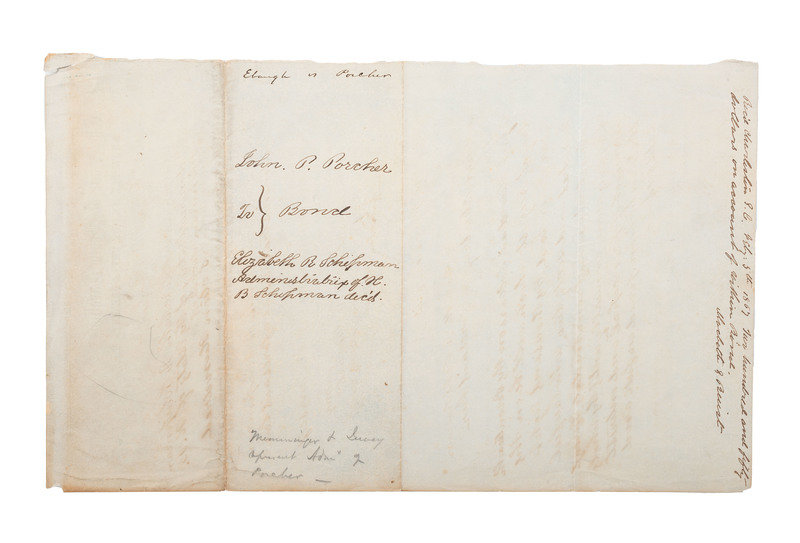 Ebaugh vs Porcher
John. P. Porcher
To } Bond
Elizabeth R Schipman
Administratrix of H.
B Schipman dec'd.
Memminger &
represent Adm'r of
Porcher —
Rec'd Charleston S. C. 5th 1867 Two hundred and fifty
dollars on account of Within Bond.
Macbeth & Buist